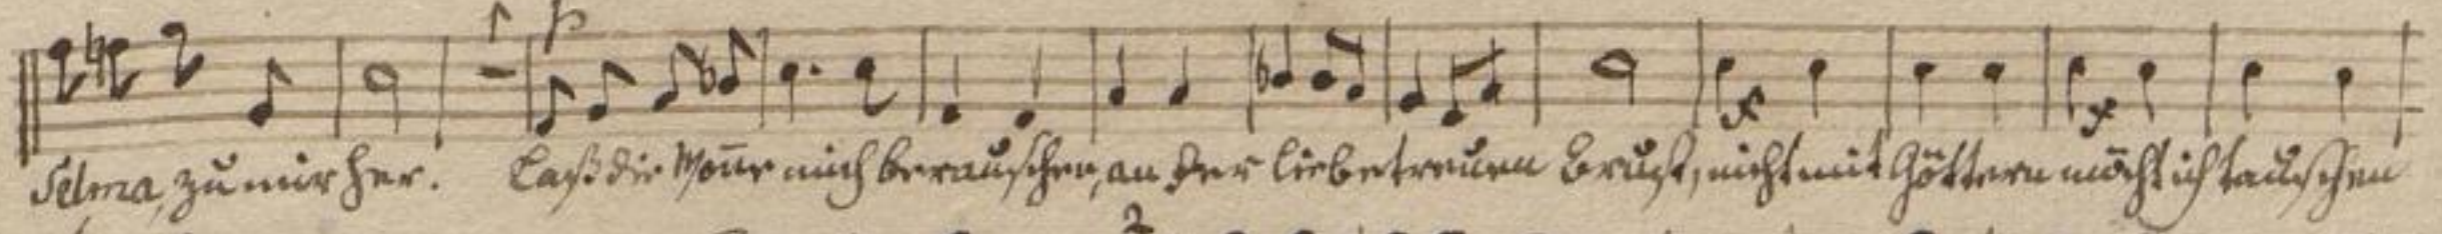 Selma, zu mir her. Laß die Wonne mich berauschen, an der Liebe treuen Brust, nicht mit Göttern möcht ich tauschen